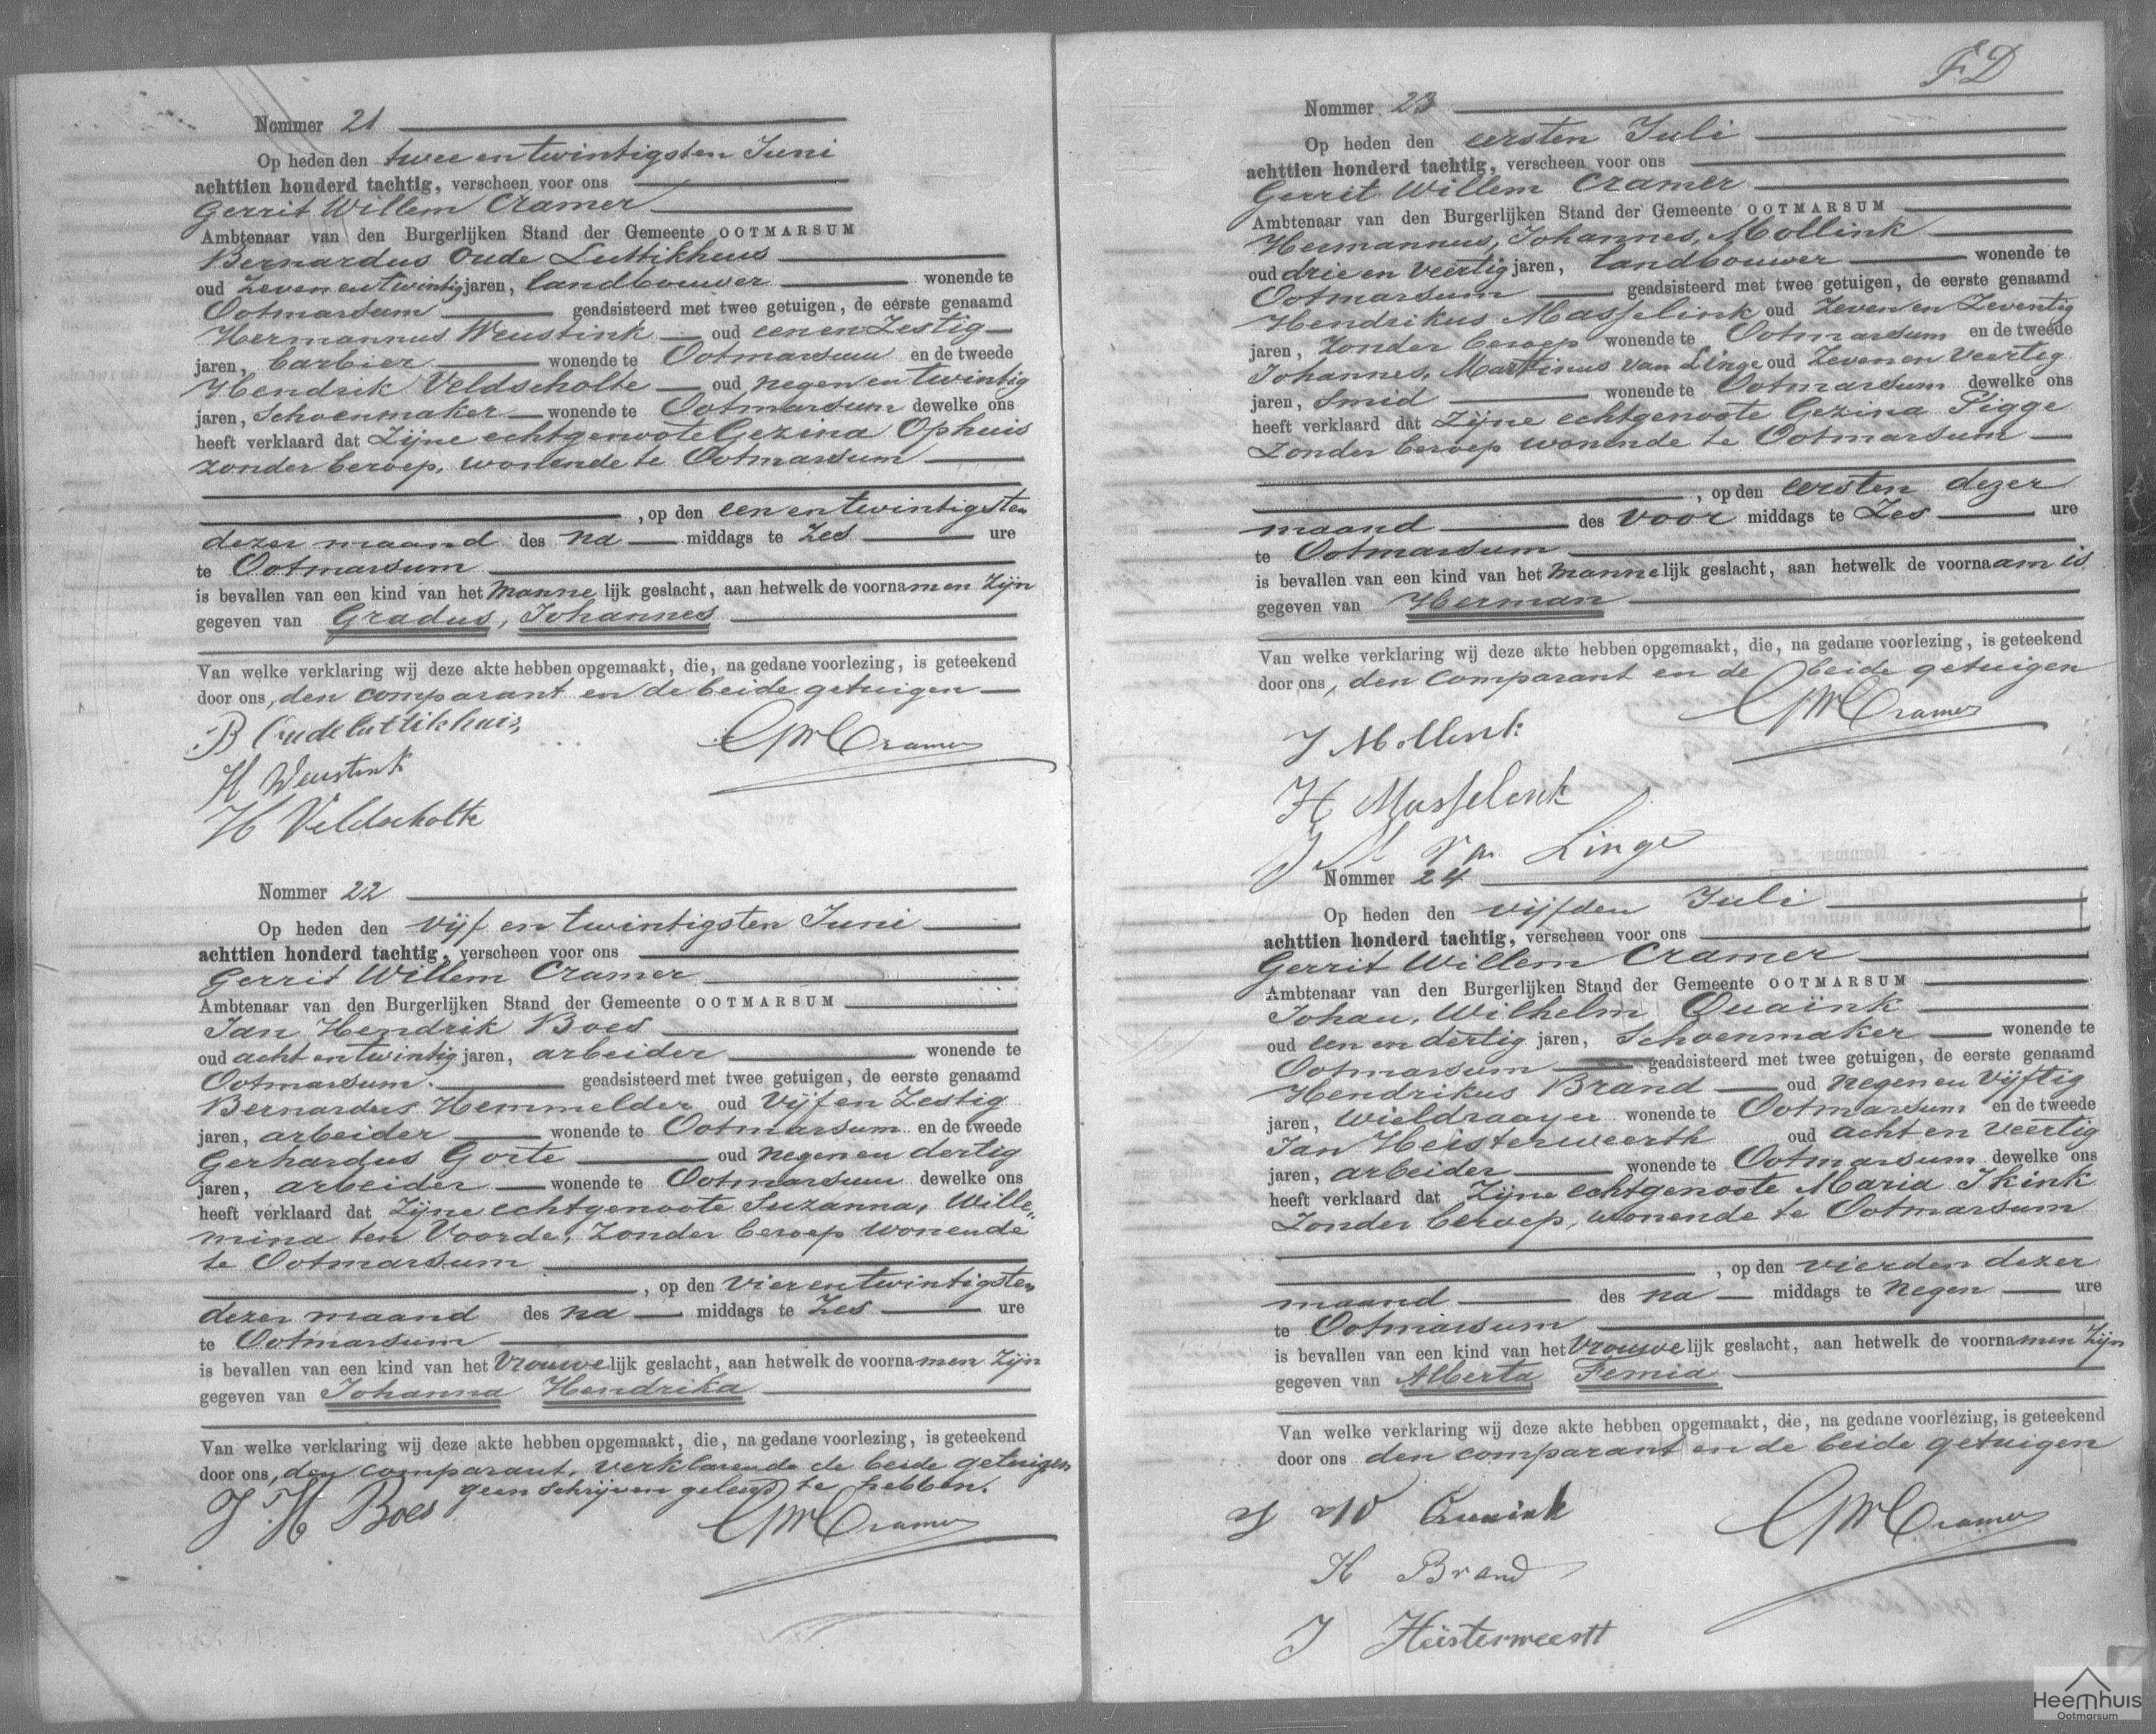 Nommer 21
Op heden den twee en twintigsten Juni
achttien honderd tachtig, verscheen voor ons
Gerrit Willem Cramer
Ambtenaar van den Burgerlijken Stand der Gemeente OOTMARSUM
Bernardus Oude Luttikhuis
oud Zeven en twintig jaren, landbouwer wonende te
Ootmarsum geadsisteerd met twee getuigen, de eerste genaamd
Hermannus Weustink oud een en Zestig
jaren, barbier wonende te Ootmarsum en de tweede
Hendrik Veldscholte oud negen en twintig
jaren, Schoenmaker wonende te Ootmarsum dewelke ons
heeft verklaard dat Zijne echtgenoote Gezina Ophuis
zonder beroep, wonende te Ootmarsum
, op den een en twintigsten
dezer maand des na middags te Zes ure
te Ootmarsum
is bevallen van een kind van het Manne lijk geslacht, aan hetwelk de voornamen Zijn
gegeven van Gradus, Johannes
Van welke verklaring wij deze akte hebben opgemaakt, die, na gedane voorlezing, is geteekend
door ons, den comparant en de beide getuigen
B Oudeluttikhuis
GWCramer
H Weustink
H Veldscholte
Nommer 22
Op heden den vijf en twintigsten Juni
achttien honderd tachtig, verscheen voor ons
Gerrit Willem Cramer
Ambtenaar van den Burgerlijken Stand der Gemeente OOTMARSUM
Jan Hendrik Boes
oud acht en twintig jaren, arbeider wonende te
Ootmarsum. geadsisteerd met twee getuigen, de eerste genaamd
Bernardus Hemmelder oud Vijf en Zestig
jaren, arbeider wonende te Ootmarsum en de tweede
Gerhardus Gorte oud negen en dertig
jaren, arbeider wonende te Ootmarsum dewelke ons
heeft verklaard dat Zijne echtgenoote Suzanna, Wille„
mina ten Voorde, Zonder beroep wonende
te Ootmarsum
, op den Vier en twintigsten
dezer maand des na middags te Zes ure
te Ootmarsum
is bevallen van een kind van het Vrouwe lijk geslacht, aan hetwelk de voornamen Zijn
gegeven van Johanna Hendrika
Van welke verklaring wij deze akte hebben opgemaakt, die, na gedane voorlezing, is geteekend
door ons, den comparant, verklarende de beide getuigen
geen schrijven geleerd te hebben.
J H Boes
GWCramer
FD
Nommer 23
Op heden den eersten Juli
achttien honderd tachtig, verscheen voor ons
Gerrit Willem Cramer
Ambtenaar van den Burgerlijken Stand der Gemeente OOTMARSUM
Hermannus, Johannes, Mollink
oud drie en Veertig jaren, landbouwer wonende te
Ootmarsum geadsisteerd met twee getuigen, de eerste genaamd
Hendrikus Masselink oud Zeven en Zeventig
jaren, Zonder beroep wonende te Ootmarsum en de tweede
Johannes, Martinus van Linge oud Zeven en Veertig
jaren, Smid wonende te Ootmarsum dewelke ons
heeft verklaard dat Zijne echtgenoote Gezina Pigge
Zonder beroep wonende te Ootmarsum
, op den eersten dezer
maand des Voor middags te Zes ure
te Ootmarsum
is bevallen van een kind van het Manne lijk geslacht, aan hetwelk de voornaam is
gegeven van Herman
Van welke verklaring wij deze akte hebben opgemaakt, die, na gedane voorlezing, is geteekend
door ons, den comparant en de beide getuigen
GWCramer
J Mollink
H Masselink
J M van Linge
Nommer 24
Op heden den vijfden Juli
achttien honderd tachtig, verscheen voor ons
Gerrit Willem Cramer
Ambtenaar van den Burgerlijken Stand der Gemeente OOTMARSUM
Johan, Wilhelm Quaink
oud een en dertig jaren, Schoenmaker wonende te
Ootmarsum geadsisteerd met twee getuigen, de eerste genaamd
Hendrikus Brand oud negen en Vijftig
jaren, Wieldraayer wonende te Ootmarsum en de tweede
Jan Heisterweerth oud acht en Veertig
jaren, arbeider wonende te Ootmarsum dewelke ons
heeft verklaard dat Zijne echtgenoote Maria Ikink
Zonder beroep, wonende te Ootmarsum
, op den vierden dezer
maand des na middags te negen ure
te Ootmarsum
is bevallen van een kind van het Vrouwe lijk geslacht, aan hetwelk de voornamen Zijn
gegeven van Alberta Femia
Van welke verklaring wij deze akte hebben opgemaakt, die, na gedane voorlezing, is geteekend
door ons den comparant en de beide getuigen
J W Quaink
GWCramer
H Brand
J Heisterweertt
Heemhuis
Ootmarsum